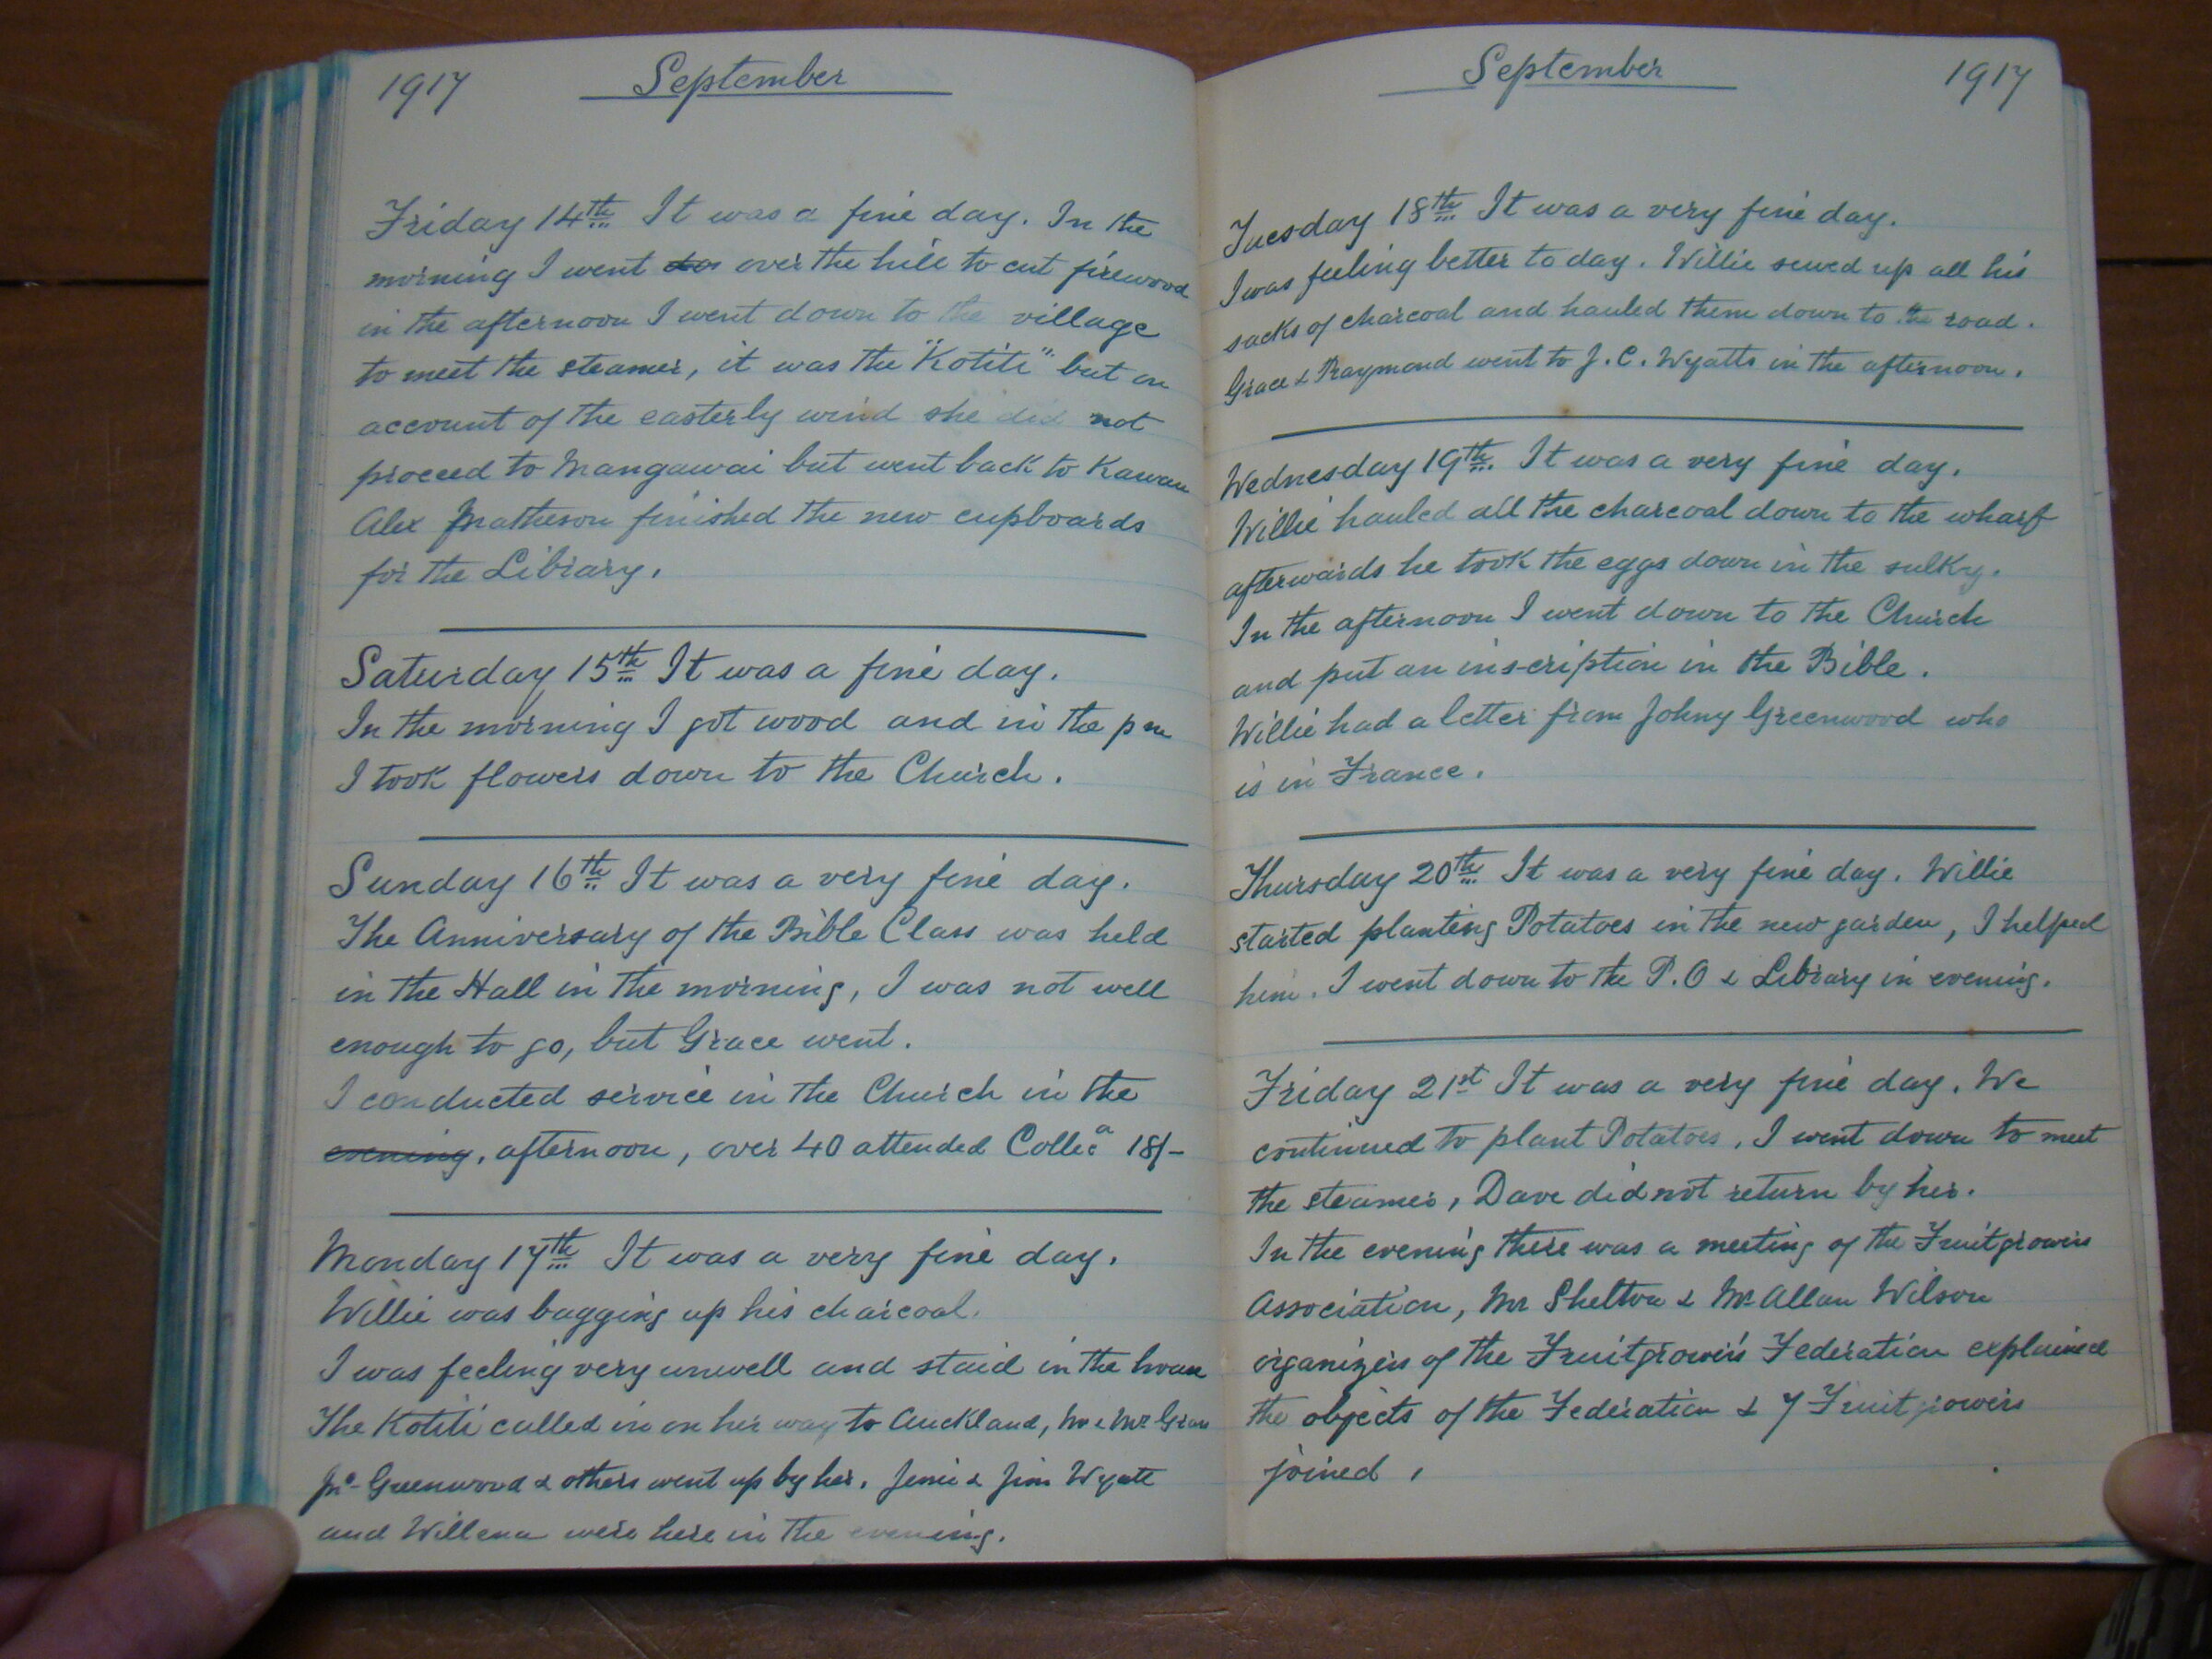 1917 September
Friday 14th It was a fine day. In the
morning I went over the hill to cut firewood
in the afternoon I went down to the village
to meet the steamer, it was the "Kotiti" but on
account of the easterly wind she did not
proceed to Mangawai but went back to Kawau
Alex Matheson finished the new cupboards
for the Library.
Saturday 15th It was a fine day.
In the morning I got wood and in the pm
I took flowers down to the Church.
Sunday 16th It was a very fine day.
The Anniversary of the Bible Class was held
in the Hall in the morning, I was not well
enough to go, but Grace went.
I conducted service in the Church in the
evening, afternoon, over 40 attended Collec 18/-
Monday 17th It was a very fine day.
Willie was bagging up his charcoal.
I was feeling very unwell and staid in the house
The Kotiti called in on her way to Auckland,
Greenwood & others went up by her. & Jim Wyatt
and Willena were here in the evening.
September 1917
Tuesday 18th It was a very fine day.
I was feeling better to day. Willie sewed up all his
sacks of charcoal and hauled them down to the road.
Grace & Raymond went to J. C. Wyatts in the afternoon.
Wednesday 19th. It was a very fine day.
Willie hauled all the charcoal down to the wharf
afterwards he took the eggs down in the sulky.
In the afternoon I went down to the Church
and put an inscription in the Bible.
Willie had a letter from Johny Greenwood who
is in France.
Thursday 20th It was a very fine day. Willie
started planting Potatoes in the new garden, I helped
him. I went down to the P.O & Library in evening.
Friday 21st It was a very fine day. We
continued to plant Potatoes. I went down to meet
the steamer, Dave did not return by her.
In the evening there was a meeting of the Fruitgrowers
Association, Mr Shelton & Mr Allan Wilson
organizers of the Fruitgrower's Federation explained
the objects of the Federation & 7 Fruitgrowers
joined.